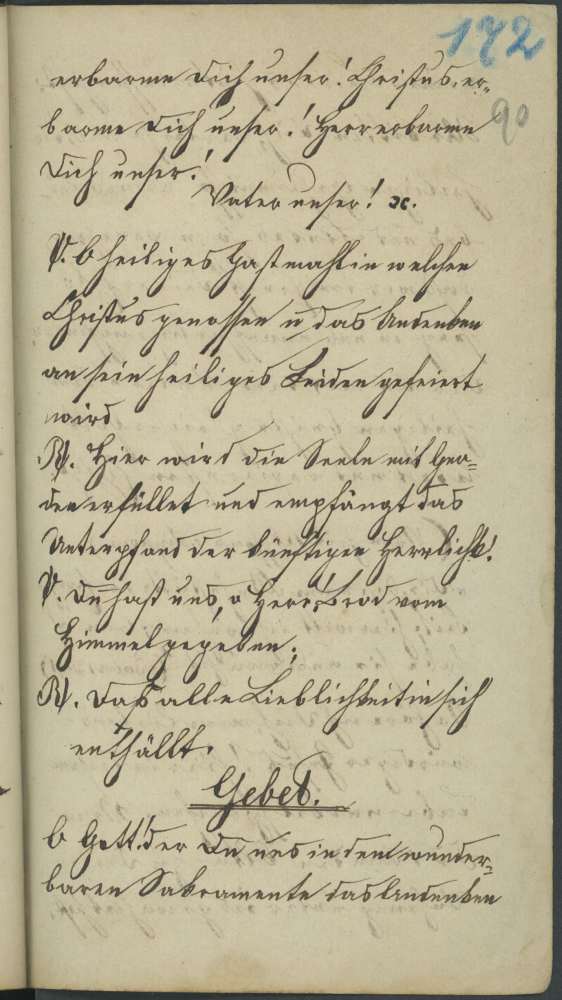 172
90
erbarme dich unser! Christus, er-
barme dich unser! Herr erbarme
dich unser!
Vater unser! ꝛc.
V. O heiliges Gastmahl in welchem
Christus genossen u das Andenken
an sein heiliges Leiden gefeiert
wird
R. Hier wird die Seele mit Gna-
den erfüllet und empfängt das
Unterpfand der künftigen Herrlichk!
V. Du hast uns, o Herr, Brod vom
Himmel gegeben;
R. Daß alle Lieblichkeit in sich
enthällt.
Gebet.
O Gott! der Du uns in dem wunder-
baren Sakramente das Andenken